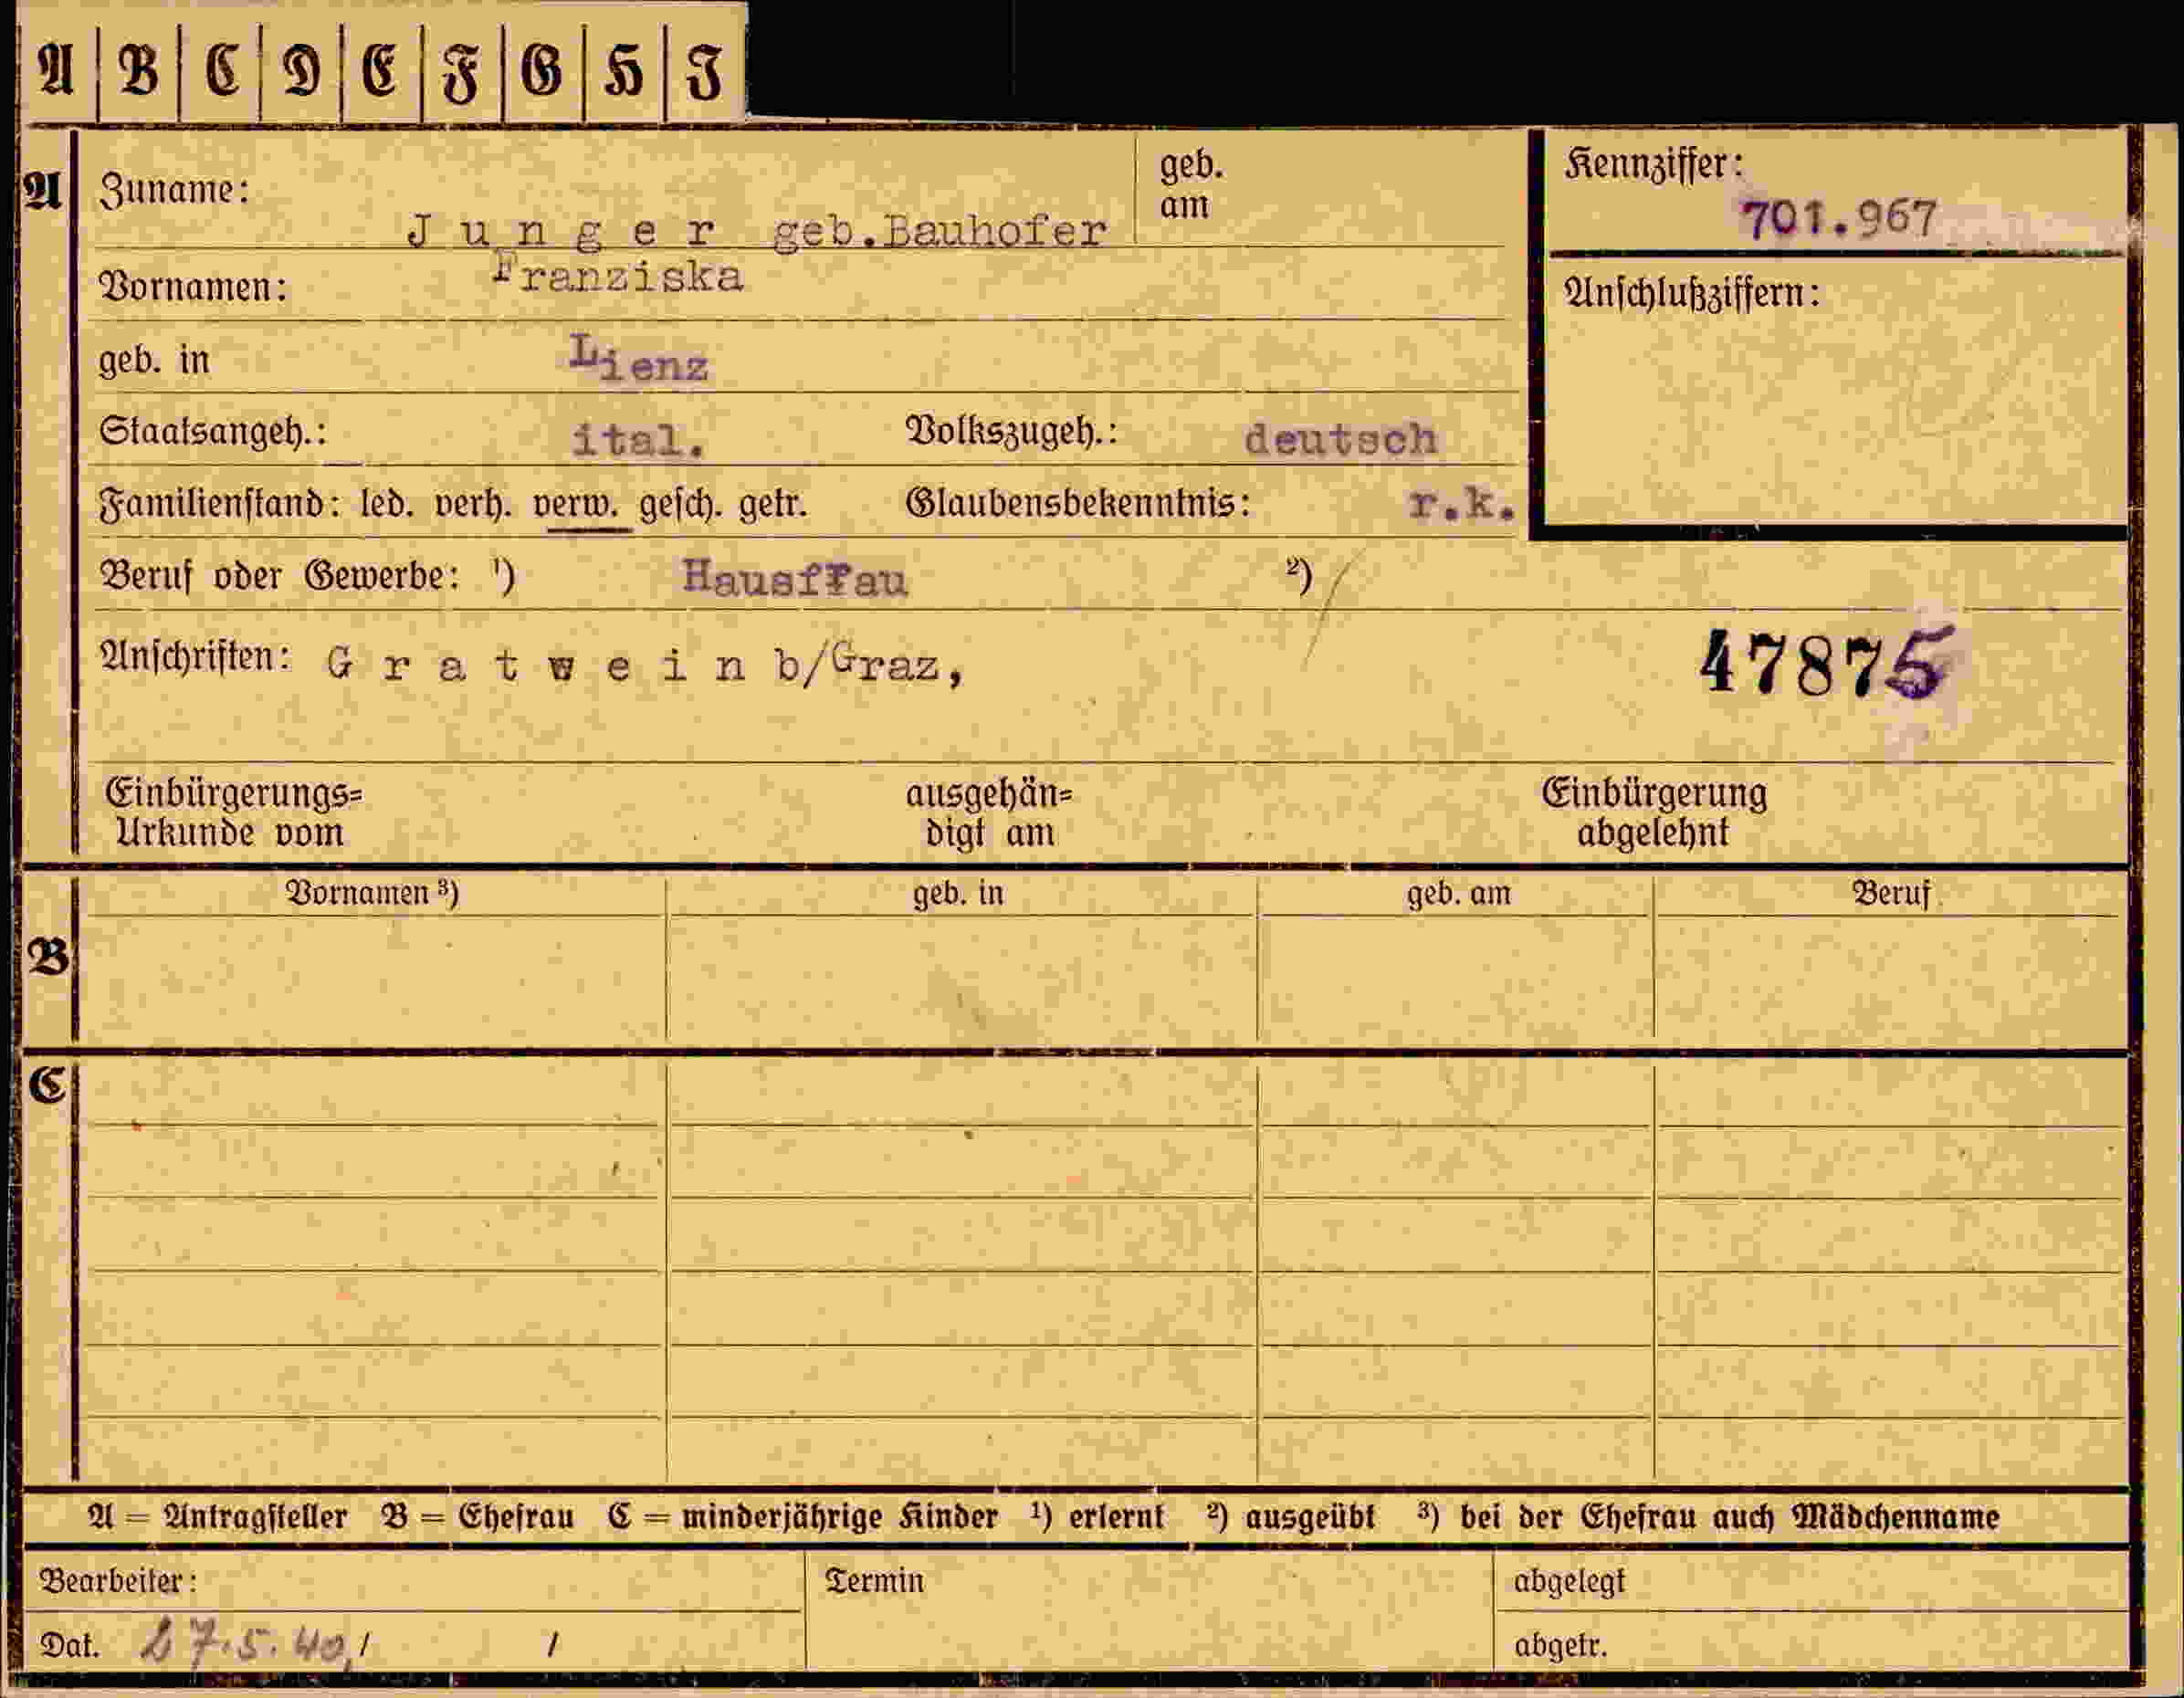 A B C D E F G H I
A Zuname: J u n g e r geb.Bauhofer geb. am
Kennziffer: 701.967
Vornamen: Franziska
Anschlußziffern:
geb. in Lienz
Staatsangeh.: ital. Volkszugeh.: deutsch
Familienstand: led. verh. verw. gesch. getr. Glaubensbekenntnis: r.k.
Beruf oder Gewerbe: 1) Hausfrau 2)
Anschriften: G r a t w e i n b/Graz,
47875
Einbürgerungs= ausgehän= Einbürgerung
Urkunde vom digt am abgelehnt
Vornamen 3) geb. in geb. am Beruf
B
C
A = Antragsteller B = Ehefrau C = minderjährige Kinder 1) erlernt 2) ausgeübt 3) bei der Ehefrau auch Mädchenname
Bearbeiter: Termin abgelegt
Dat. 27.5.40 / / abgetr.